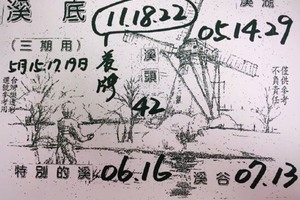 溪底
11.18.22
溪湖
05.14.29
(三期用)
5月15.17.19日
養牌
溪頭
42
僅供參考
不負責任
特別的溪
06.16
溪谷
07.13